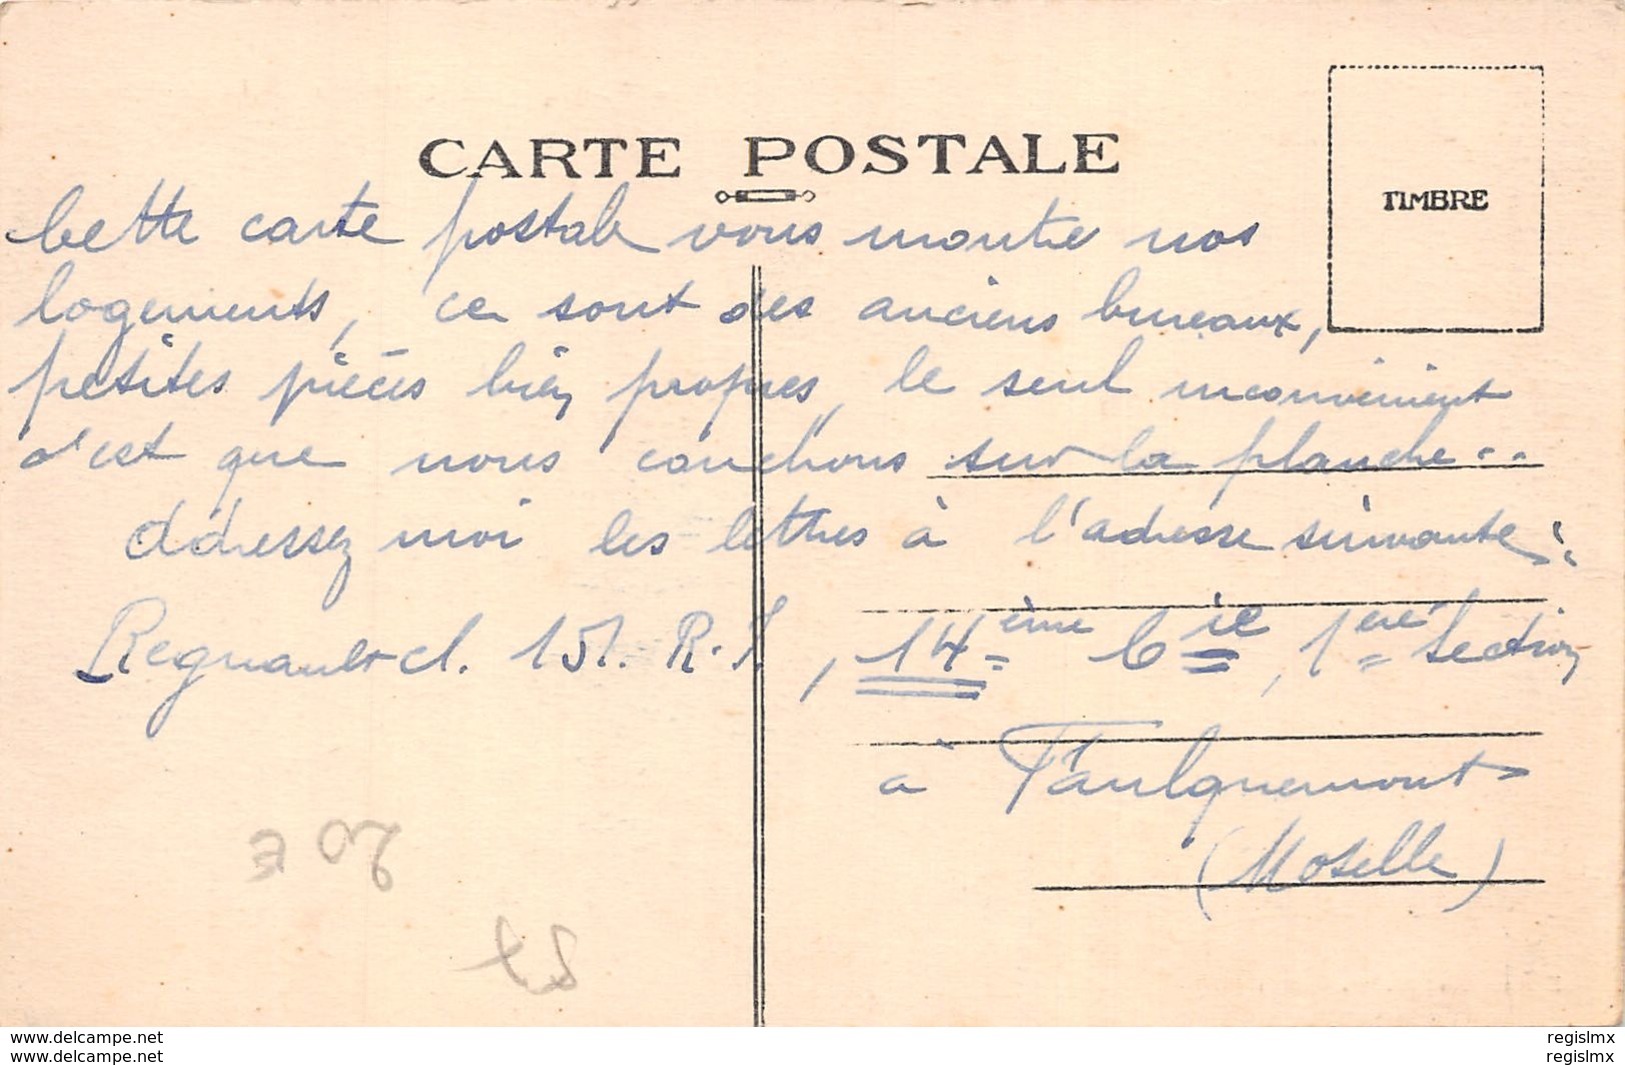 CARTE POSTALE
TIMBRE
Cette carte postale vous montre nos
logements, ce sont des anciens bureaux,
petites pièces bien propres, le seul inconvénient
c'est que nous couchons sur la planche..
Adressez moi les lettres à l'adresse suivante:
Regnault cl. 151. R.I, 14ème Cie, 1ère Section
à Faulquemont
(Moselle)
regislmx
www.delcampe.net
regislmx
www.delcampe.net